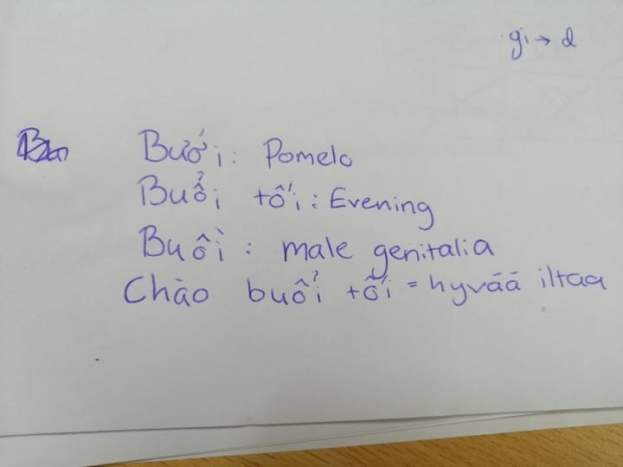 gi → d
Bưới: Pomelo
Buổi tối: Evening
Buồi: male genitalia
Chào buổi tối = hyvää iltaa